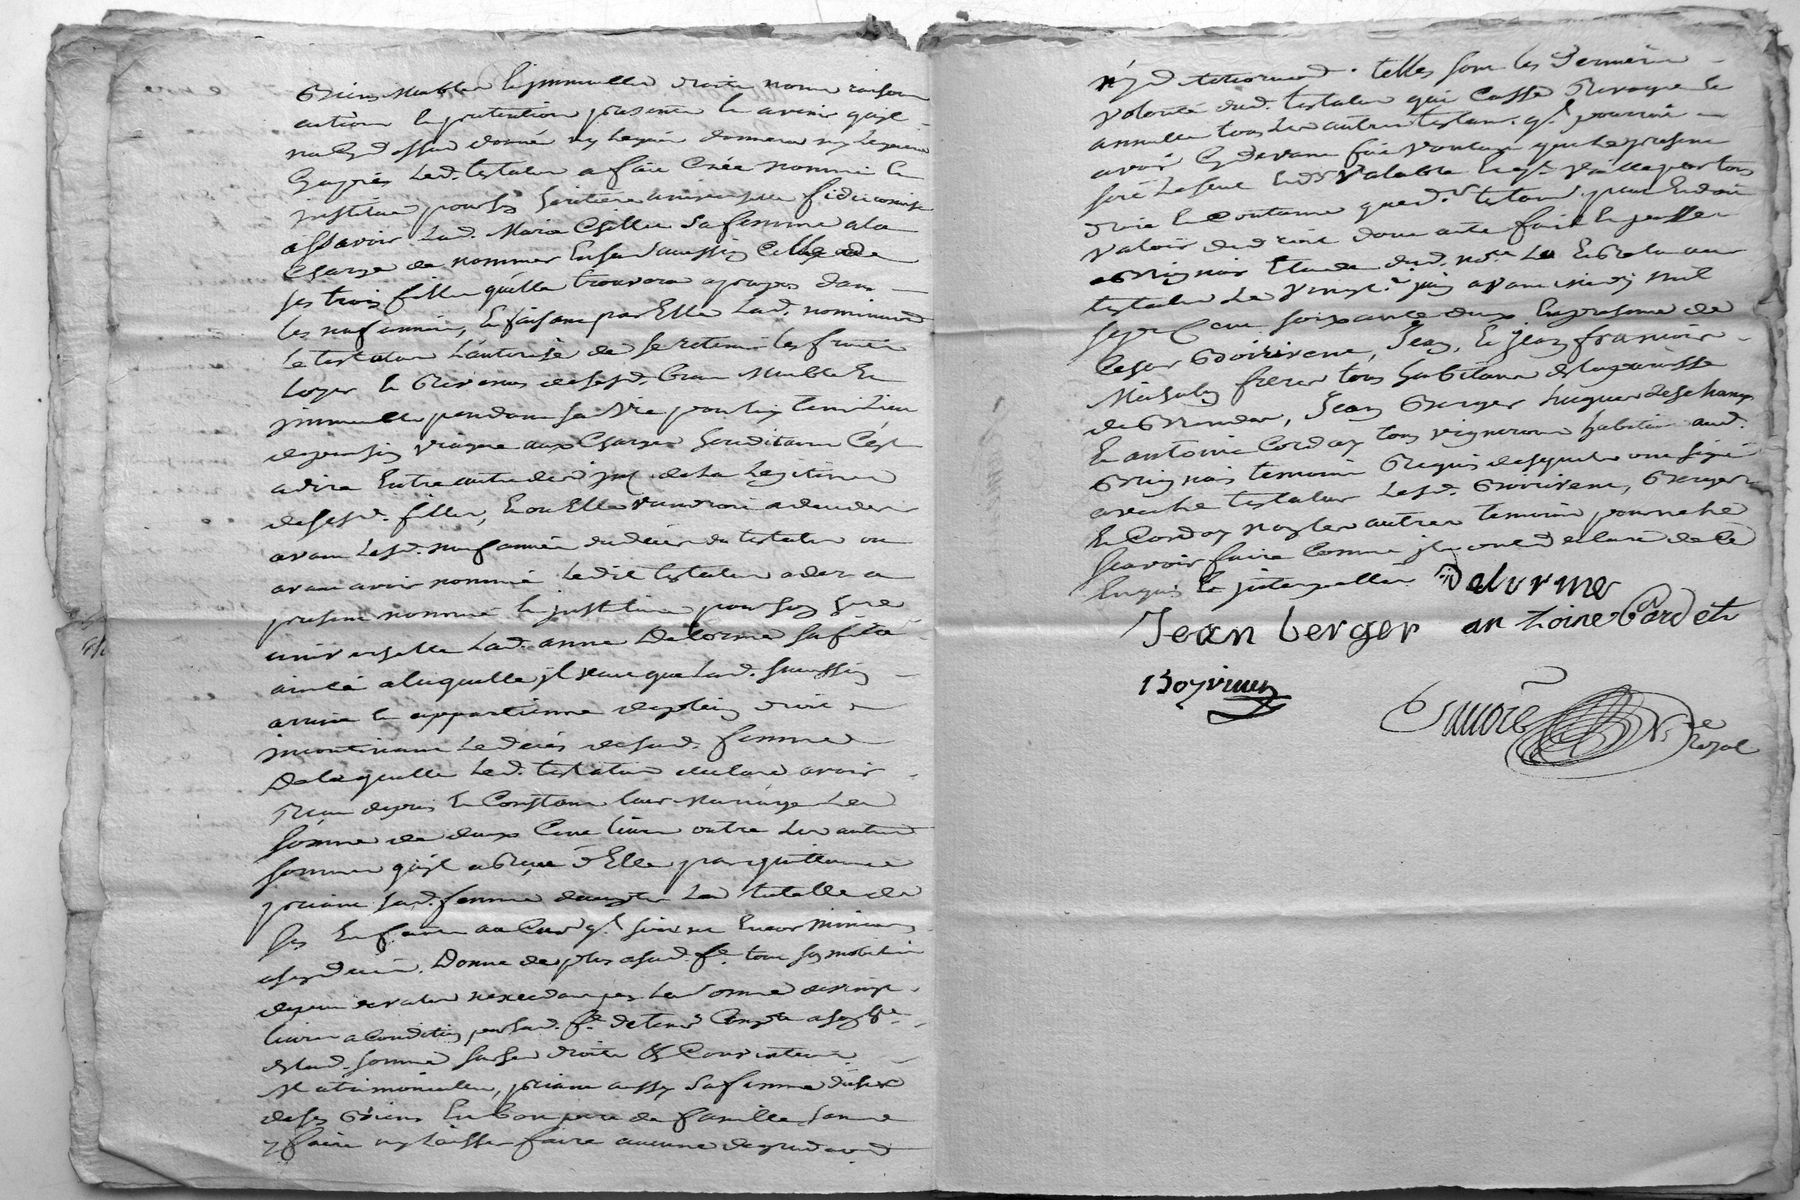 Biens meubles & immeubles droits noms raisons
actions & pretentions presents & avenir quil
na cyd. assus donné ny legué donnera ny leguera
cyapres led. testateur a fait créé nommé &
institué pour sa heritiere universelle fideicomise
assavoir lad. Marie sa femme a la
charge de nommer en sad. sucession celle de
ses trois filles quelle trouvera apropos dans
les neuf années, & faisant par elle lad. nomination
le testateur lautorise de se retenir les fruits
loyer & Revenus desesd. biens Meubles &
immeubles pendant sa vie pour luy tenir lieu
de pension viagere aux charges hereditaires cest
adire entre autre des de la legitime
desesd. filles, & ou elle viendroit a deceder
avant lesd. neuf années du deces du testateur ou
avant avoir nommé ledit testateur a des a
present nommé & institué pour son here
universelle lad. anne Delorme sa fille
ainée a laquelle il veut que lad. sucession
arrive & appartienne de plein droit
incontinent le deces de sad. femme
De laquelle led. testateur declare avoir
Receu depuis & constant leur mariage la
somme de deux cent livres outre les autres
sommes quil a Receu d'Elle par quittance
priant sad. femme daccepter la tutelle de
ses enfants au cas qls. soient encor mineurs
a son deces. Donne de plus a sad. fe. tout son mobilier
depuis valeur nexcedant pas la somme de vingt
livres a condition par sad. fe. de tenir compte a son hre.
de lad. somme sur ses droits & conventions
Matrimoniales, priant aussy sa femme duser
de ses Biens en bon pere de famille sans
y faire ny laisser faire aucune degradation
ny deteriorat. telles sont les dernieres
volontés dud. testateur qui casse Revoque &
annulle tous les autres testam. ql. pourroit
avoir cydevant fait voulant que le present
soit le seul valable & ql. vaille par tous
droit & coutume que d. testam. peut & doit
valoir de droit dont acte fait & passé
a Brignais Etude dud. nore. Le Etable au
testateur le vingt. juin avant midi mil
sept cent soixante deux en presence de
Cesar Boirivent, Jean, & Jean françois
freres tous habitans de la paroisse
de Brindas, Jean Berger hugues deschamps
& antoine Cordox tous vignerons habitans aud.
Brignais temoins Requis desquels ont signé
avec le testateur lesd. Boirivent, Berger
& Cordox non les autres temoins pour ne le
scavoir faire comme ils ont declaré de ce
Enquis & interpellés Delorme
Jean berger an toine Cordet
Boyvinen
Nre
Royal